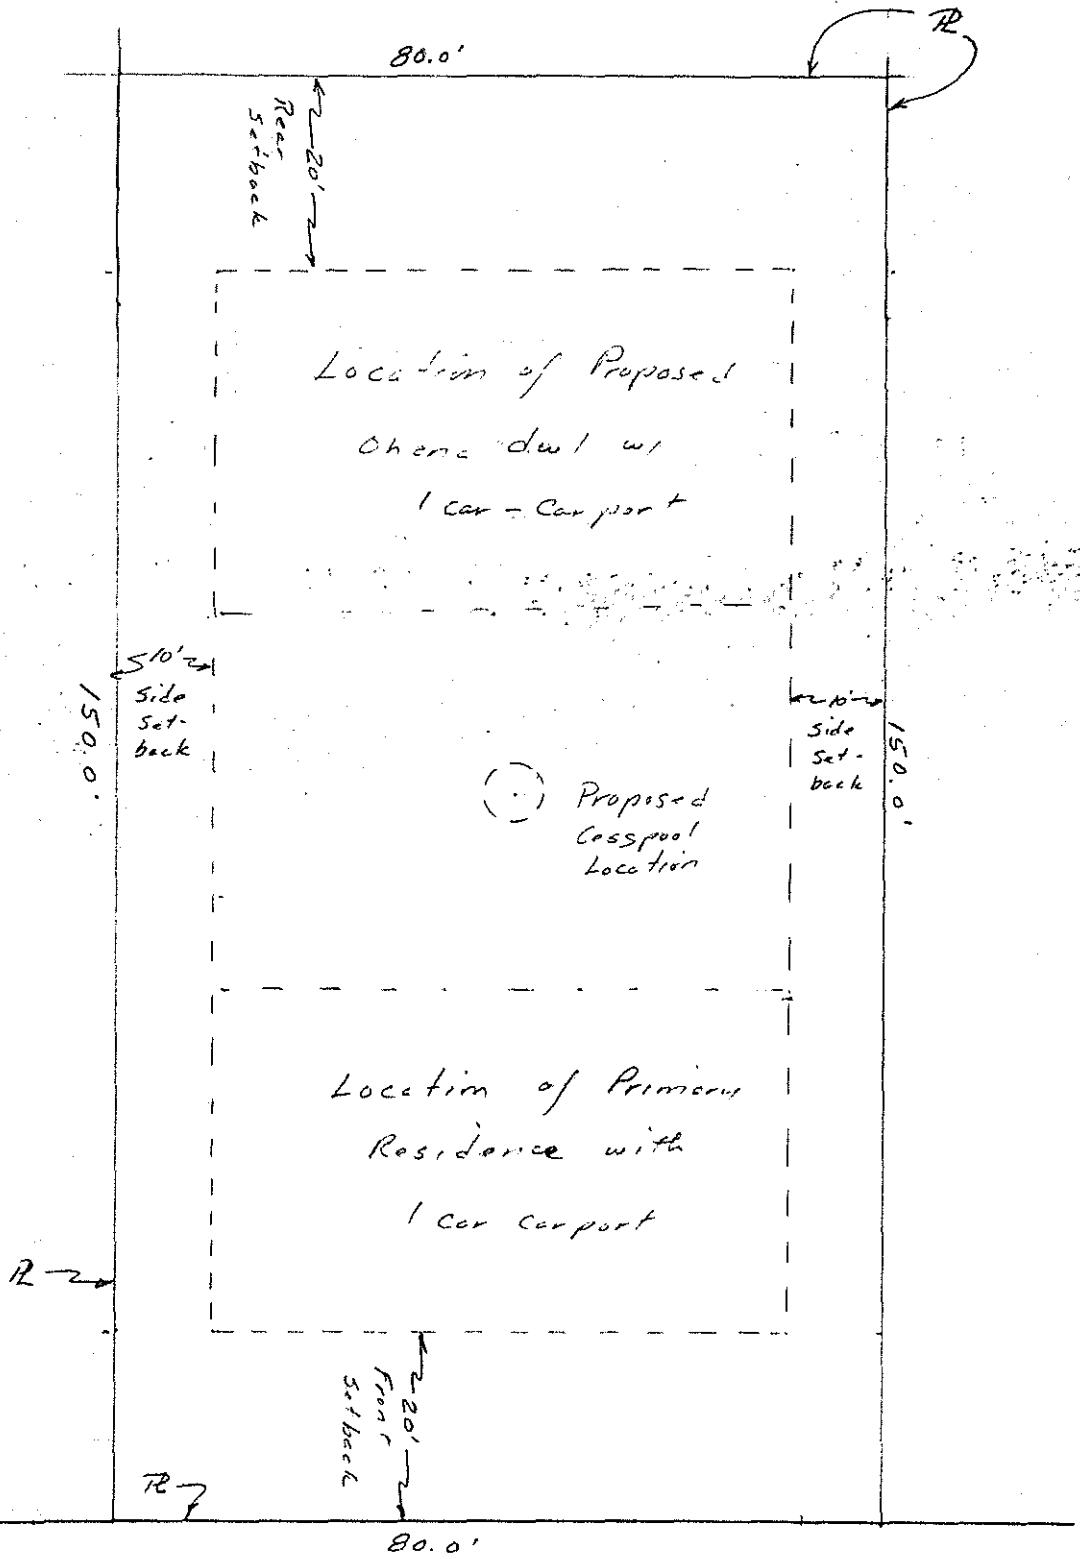 80.0'
PL
20'
Rear
Setback
Location of Proposed
Ohana dwl w/
1 car - Carport
10'
Side
Set-
back
150.0'
10'
Side
Set-
back
150.0'
Proposed
Cesspool
Location
Location of Primary
Residence with
1 Car Carport
PL
20'
Front
Setback
PL
80.0'